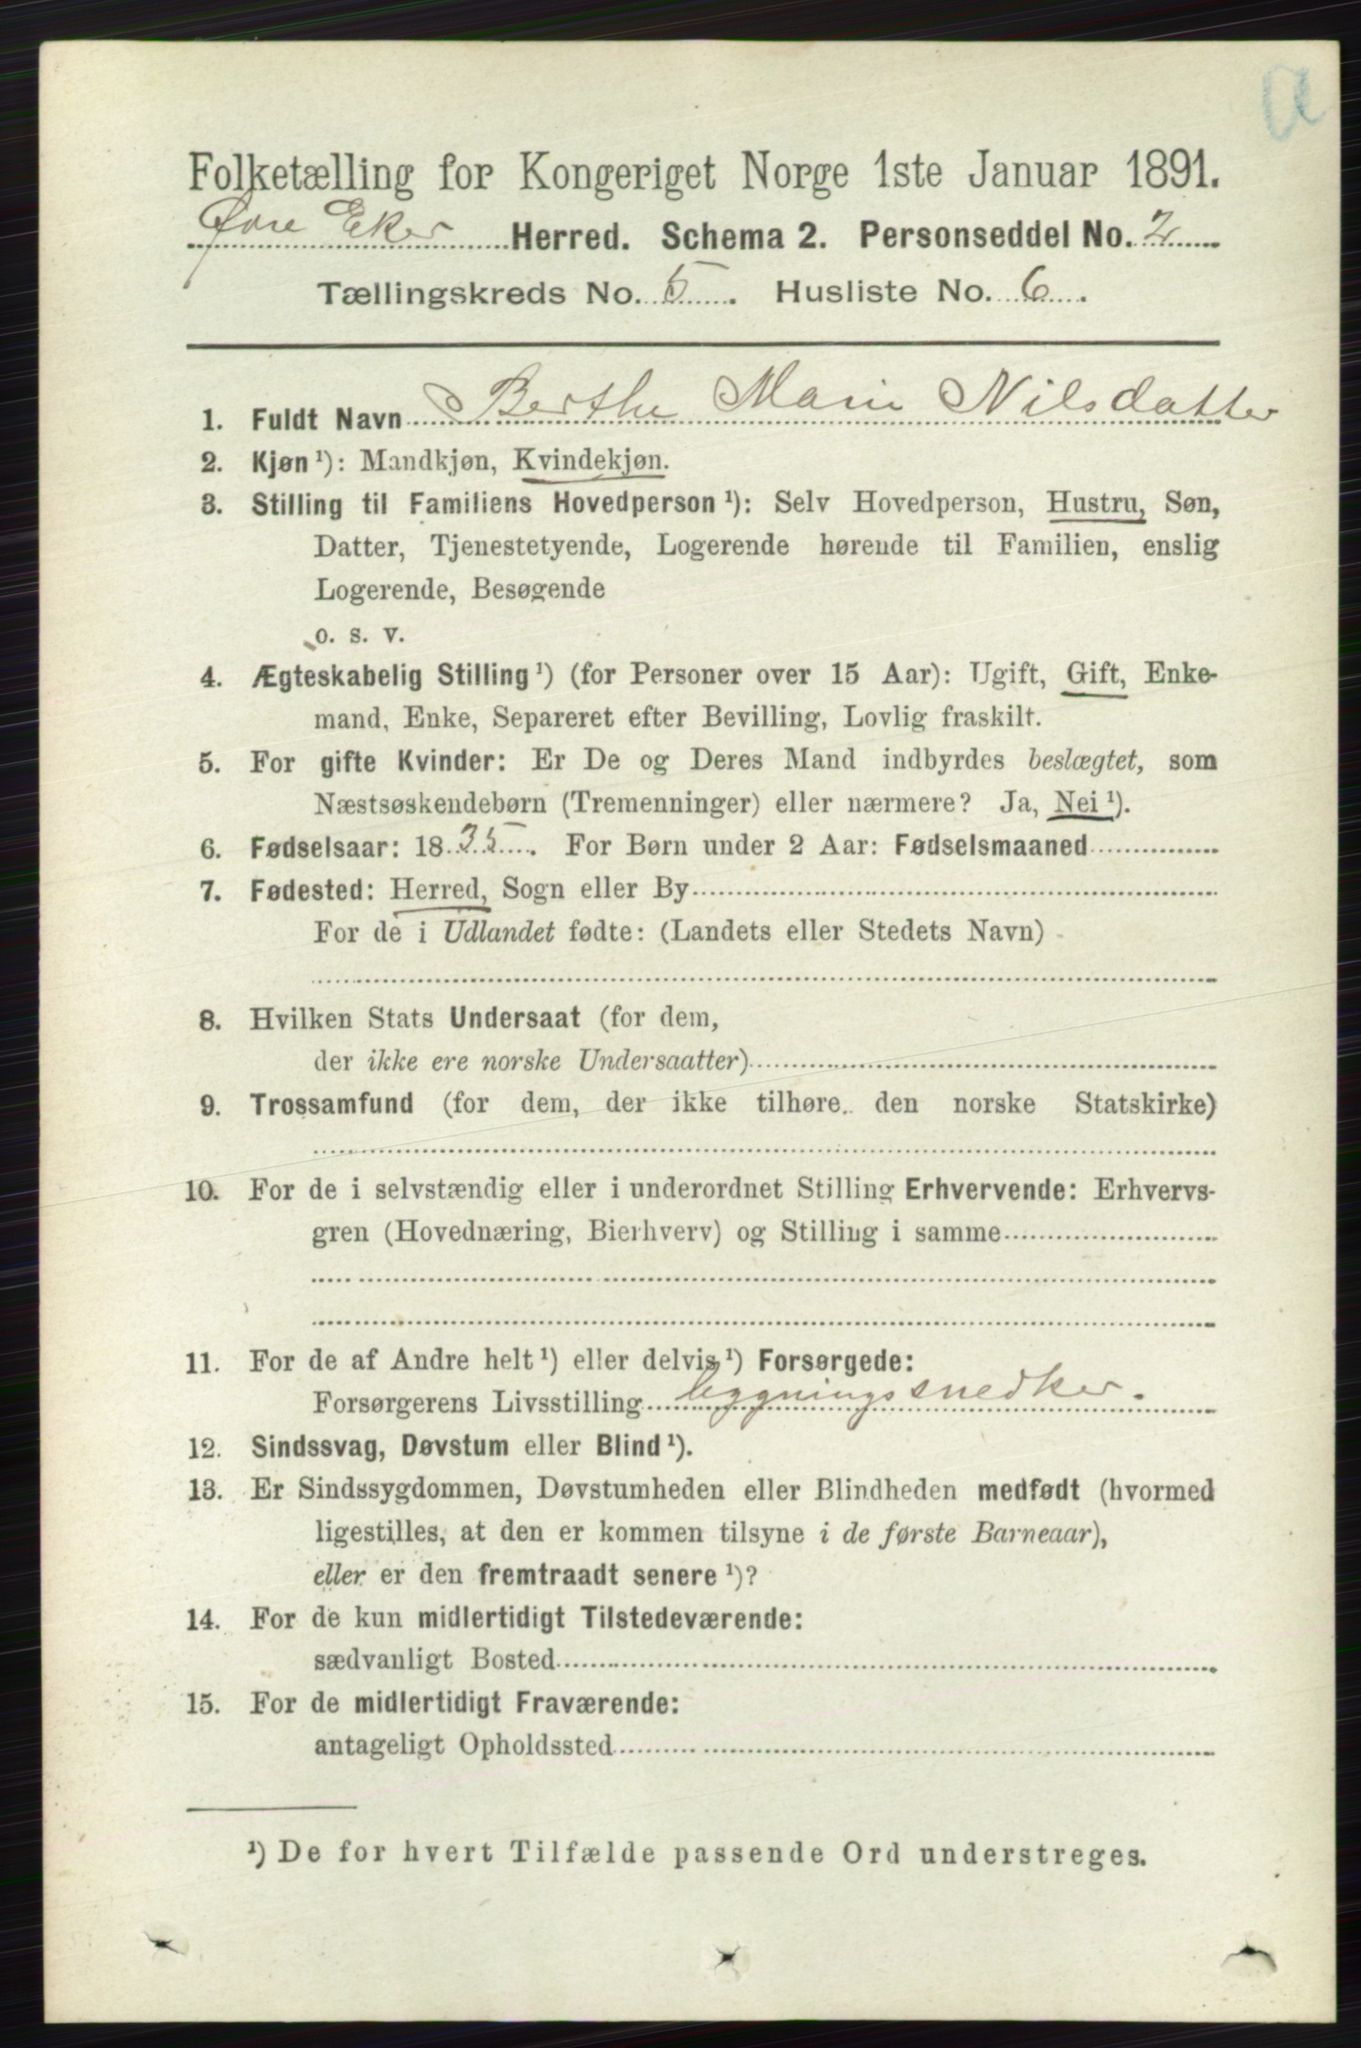 a
Folketælling for Kongeriget Norge 1ste Januar 1891.
Øvre Eker Herred. Schema 2. Personseddel No. 2
Tællingskreds No. 5. Husliste No. 6.
1. Fuldt Navn Berthe Marie Nilsdatter
2. Kjøn ¹): Mandkjøn, Kvindekjøn.
3. Stilling til Familiens Hovedperson ¹): Selv Hovedperson, Hustru, Søn,
Datter, Tjenestetyende, Logerende hørende til Familien, enslig
Logerende, Besøgende
o. s. v.
4. Ægteskabelig Stilling ¹) (for Personer over 15 Aar): Ugift, Gift, Enke-
mand, Enke, Separeret efter Bevilling, Lovlig fraskilt.
5. For gifte Kvinder: Er De og Deres Mand indbyrdes beslægtet, som
Næstsøskendebørn (Tremenninger) eller nærmere? Ja, Nei ¹).
6. Fødselsaar: 1835. For Børn under 2 Aar: Fødselsmaaned
7. Fødested: Herred, Sogn eller By
For de i Udlandet fødte: (Landets eller Stedets Navn)
8. Hvilken Stats Undersaat (for dem,
der ikke ere norske Undersaatter)
9. Trossamfund (for dem, der ikke tilhøre den norske Statskirke)
10. For de i selvstændig eller i underordnet Stilling Erhvervende: Erhvervs-
gren (Hovednæring, Bierhverv) og Stilling i samme
11. For de af Andre helt ¹) eller delvis ¹) Forsørgede:
Forsørgerens Livsstilling bygningssnedker.
12. Sindssvag, Døvstum eller Blind ¹).
13. Er Sindssygdommen, Døvstumheden eller Blindheden medfødt (hvormed
ligestilles, at den er kommen tilsyne i de første Barneaar),
eller er den fremtraadt senere ¹)?
14. For de kun midlertidigt Tilstedeværende:
sædvanligt Bosted
15. For de midlertidigt Fraværende:
antageligt Opholdssted
¹) De for hvert Tilfælde passende Ord understreges.